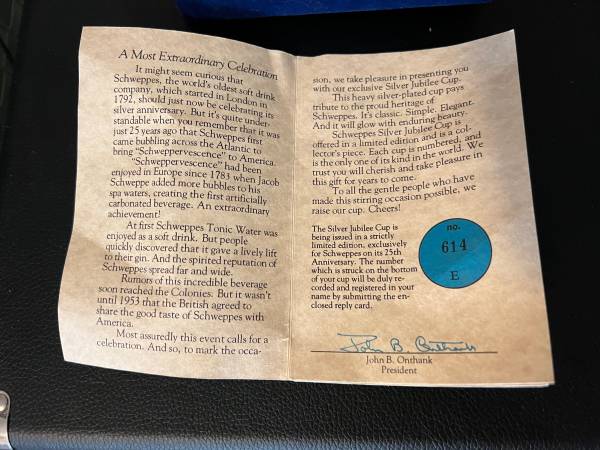 A Most Extraordinary Celebration
It might seem curious that
Schweppes, the world's oldest soft drink
company, which started in London in
1792, should just now be celebrating its
silver anniversary. But it's quite under-
standable when you remember that it was
just 25 years ago that Schweppes first
came bubbling across the Atlantic to
bring "Schweppervescence" to America.
"Schweppervescence" had been
enjoyed in Europe since 1783 when Jacob
Schweppe added more bubbles to his
spa waters, creating the first artificially
carbonated beverage. An extraordinary
achievement!
At first Schweppes Tonic Water was
enjoyed as a soft drink. But people
quickly discovered that it gave a lively lift
to their gin. And the spirited reputation of
Schweppes spread far and wide.
Rumors of this incredible beverage
soon reached the Colonies. But it wasn't
until 1953 that the British agreed to
share the good taste of Schweppes with
America.
Most assuredly this event calls for a
celebration. And so, to mark the occa-
sion, we take pleasure in presenting you
with our exclusive Silver Jubilee Cup.
This heavy silver-plated cup pays
tribute to the proud heritage of
Schweppes. It's classic. Simple. Elegant.
And it will glow with enduring beauty.
Schweppes Silver Jubilee Cup is
offered in a limited edition and is a col-
lector's piece. Each cup is numbered, and
is the only one of its kind in the world. We
trust you will cherish and take pleasure in
this gift for years to come.
To all the gentle people who have
made this stirring occasion possible, we
raise our cup. Cheers!
The Silver Jubilee Cup is
being issued in a strictly
limited edition, exclusively
for Schweppes on its 25th
Anniversary. The number
which is struck on the bottom
of your cup will be duly re-
corded and registered in your
name by submitting the en-
closed reply card.
no.
614
E
John B. Onthank
John B. Onthank
President